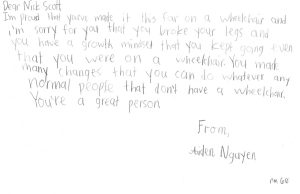 Dear Nick Scott
I'm proud that youve made it this far on a wheelchair and
i'm sorry for you that you broke your legs and
you have a growth mindset that you kept going even
that you were on a wheelchair. You made
many changes that you can do whatever any
normal people that don't have a wheelchair.
You're a great person
From,
Aiden Nguyen